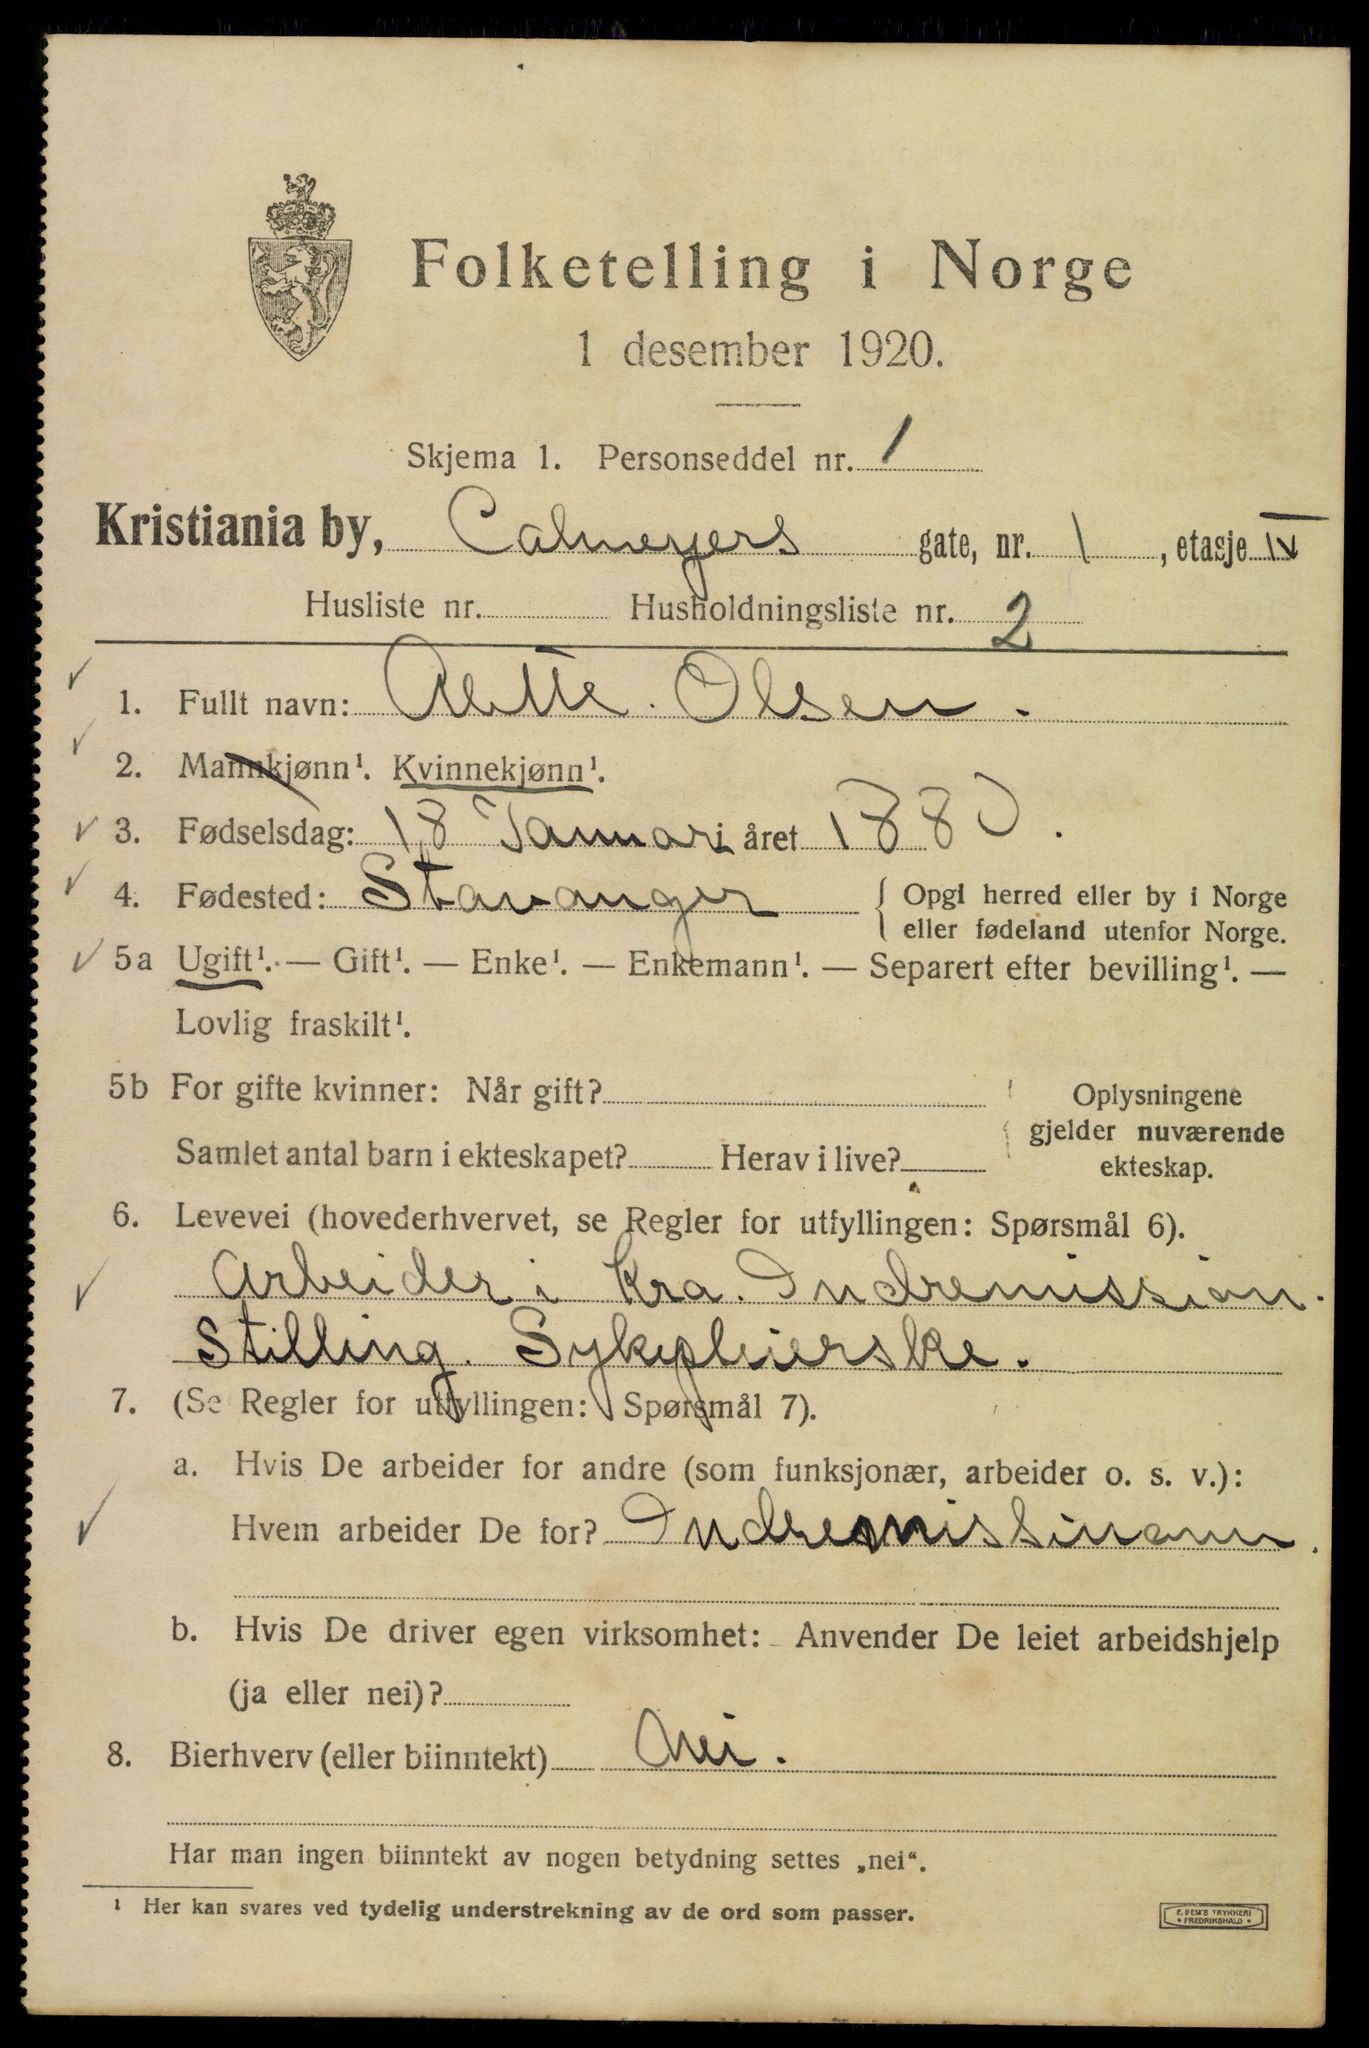 Folketelling i Norge
1 desember 1920.
Skjema 1. Personseddel nr. 1
Kristiania by, Calmeyers gate, nr. 1, etasje IV
Husliste nr. Husholdningsliste nr. 2
1. Fullt navn: Alette. Olsen.
2. Mannkjønn¹. Kvinnekjønn¹.
3. Fødselsdag: 18 Januar i året 1880.
4. Fødested: Stavanger { Opgi herred eller by i Norge
eller fødeland utenfor Norge.
5a Ugift¹. — Gift¹. — Enke¹. — Enkemann¹. — Separert efter bevilling¹. —
Lovlig fraskilt¹.
5b For gifte kvinner: Når gift? Oplysningene
gjelder nuværende
Samlet antal barn i ekteskapet? Herav i live? ekteskap.
6. Levevei (hovederhvervet, se Regler for utfyllingen: Spørsmål 6).
Arbeider i Kra. Indremission.
Stilling. Sykepleierske.
7. (Se Regler for utfyllingen: Spørsmål 7).
a. Hvis De arbeider for andre (som funksjonær, arbeider o. s. v.):
Hvem arbeider De for?
b. Hvis De driver egen virksomhet: Anvender De leiet arbeidshjelp
(ja eller nei)?
8. Bierhverv (eller biinntekt) Nei.
Har man ingen biinntekt av nogen betydning settes „nei“.
¹ Her kan svares ved tydelig understrekning av de ord som passer.
E. SEM'S TRYKKERI
FREDRIKSHALD